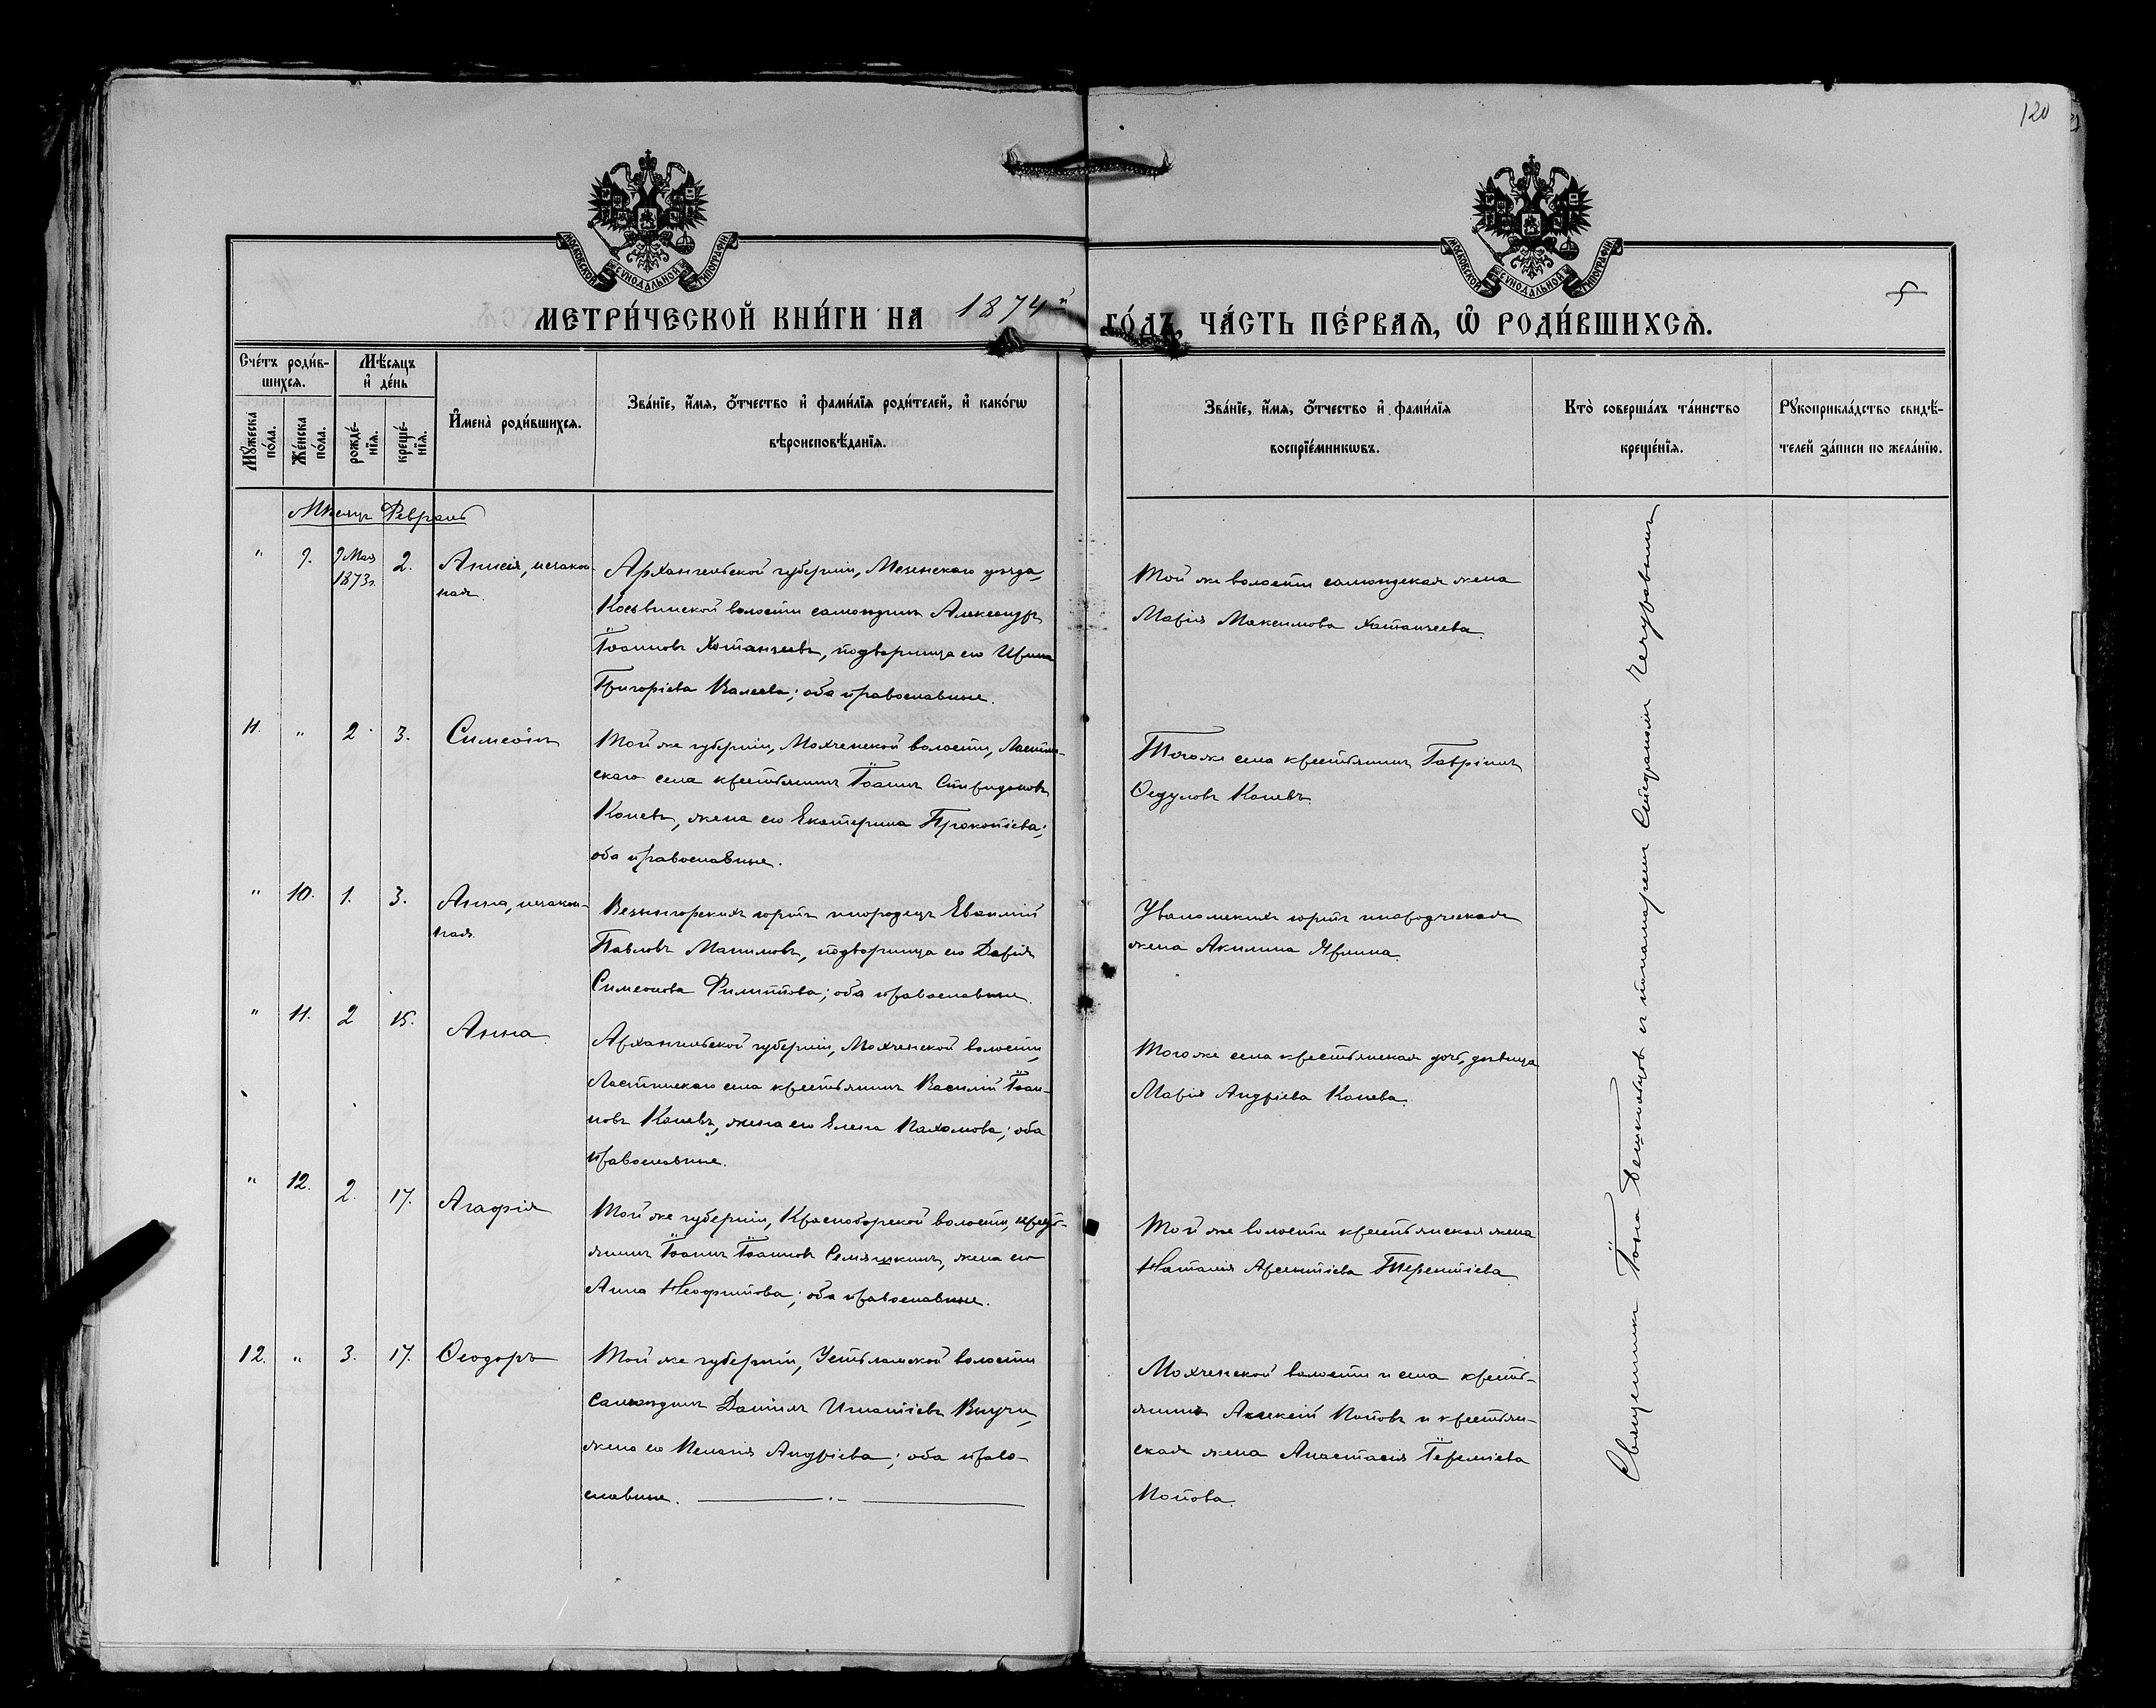 120
МОСКОВСКОЙ СѴНОДАЛЬНОЙ ТИПОГРАФІИ
МОСКОВСКОЙ СѴНОДАЛЬНОЙ ТИПОГРАФІИ
5
МЕТРИ́ЧЕСКОЙ КНИ́ГИ НА 1874й ГО́ДЪ, ЧА́СТЬ ПЕ́РВАѦ, Ѽ РОДИ́ВШИХСѦ.
Сче́тъ роди́в-
шихсѧ.
Мꙋ́жеска
по́ла.
Же́нска
по́ла.
Мѣ́сѧцъ
и҆ де́нь
рожде́-
нїѧ.
креще́-
нїѧ.
И҆мена̀ роди́вшихсѧ.
Зва́нїе, и҆́мѧ, ѻ҆́тчество и҆ фами́лїѧ роди́телей, и҆ како́гѡ
вѣроисповѣ́данїѧ.
Зва́нїе, и҆́мѧ, ѻ҆́тчество и҆ фами́лїѧ
воспрїе́мникѡвъ.
Кто̀ соверша́лъ та́инство
креще́нїѧ.
Рꙋкоприкла́дство свидѣ́-
телей за́писи по жела́нїю.
Мѣсяцъ Февраль
" 9. 9 Мая 1873 г. 2. Анисія, незакон-
ная.
Архангельской губерніи, Мезенскаго уѣзда,
волости самоѣдинъ Александръ
Іоанновъ Хатанзеевъ, подворница его Ирина
Григоріева Валеева; оба православные.
Той же волости самоѣдская жена
Марія Максимова Хатанзеева.
11. " 2. 3. Симеонъ
Той же губерніи, Мохченской волости, Ласти-
скаго села крестьянинъ Іоаннъ Спиридоновъ
Каневъ, жена его Екатерина Прокопіева;
оба православные.
Того же села крестьянинъ Гавріилъ
Ѳедуловъ Каневъ.
" 10. 1. 3. Анна, незакон-
ная.
юртъ инородецъ Евѳимій
Павловъ подворница его Дарія
Симеонова Филиппова; оба православные.
юртъ инородческая
жена Акилина
" 11. 2 15. Анна.
Архангельской губерніи, Мохченской волости,
Ластинскаго села крестьянинъ Василій Іоан-
новъ Каневъ, жена его Елена Пахомова; оба
православные.
Того же села крестьянская дочь, дѣвица
Марія Андріева Канева.
" 12. 2. 17. Агафія
Той же губерніи, Красноборской волости, кресть-
янинъ Іоаннъ Іоанновъ Семяшкинъ, жена его
Анна Неофитова; оба православные.
Той же волости крестьянская жена
Наталія Арсентіева Терентіева.
12. " 3. 17. Ѳеодоръ
Той же губерніи, Устьцилемской волости
Самоѣдинъ Даніилъ Игнатіевъ Выучи,
жена его Пелагія Андріева; оба право-
славные.
Мохченской волости и села кресть-
янинъ Алексій Поповъ и крестьян-
ская жена Анастасія Іереміева
Попова.
Священникъ Іона съ пономаремъ Стефаномъ